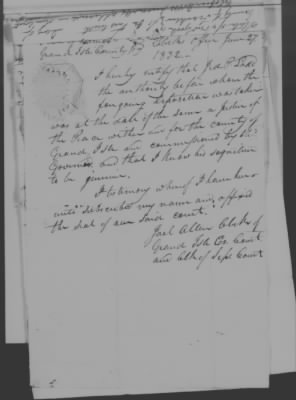 Grand Isle County ss Clerks office June 27
1832.
I hereby certify that Jed. P. Ladd
the authority before whom the
foregoing deposition was taken
was at the date of the same a Justice of
the Peace within and for the county of
Grand Isle and commissioned by the
Governor and that I know his signature
to be genuine.
In testimony whereof I have here
unto subscribed my name and affixed
the seal of our said court.
Joel Allen Clerk of
Grand Isle Co. Court
and Clk of Sup. Court